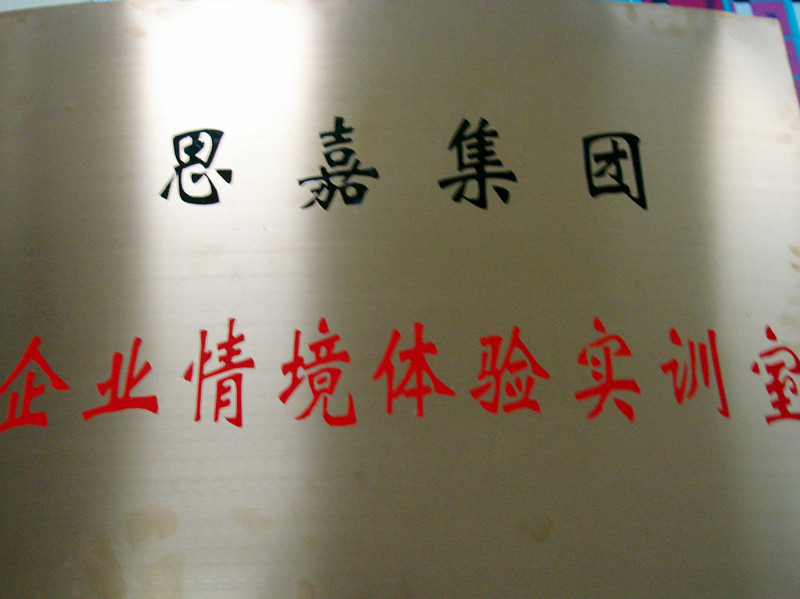 思嘉集团
企业情境体验实训室